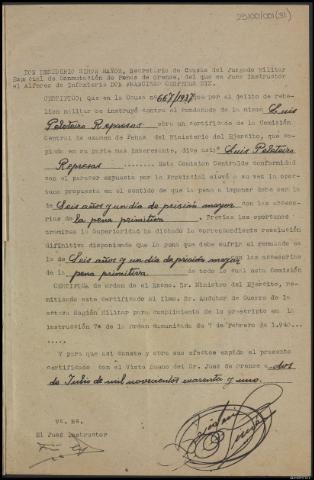 DON DESIDERIO GIRON MAÑOR, Secretario de Causas del Juzgado Militar
Especial de Conmutación de Penas de Orense, del que es Juez Instructor
el Alferez de Infanteria DON FRANCISCO
CERTIFICO; que en la Causa nº 667/1937 por el delito de rebe-
lion militar se instruyó contra el condenado de la misma Luis
Peloteiro Represas obra un certificado de la Comisión
Central de examen de Penas del Ministerio del Ejército, que co-
piado en su parte mas interesante, dice asi: Luis Peloteiro
Represas -------- Esta Comision Central de conformidad
con el parecer expuesto por la Provincial elevó a su vez la oport-
tuna propuesta en el sentido de que la pena a imponer debe ser la
de Seis años y un dia de prisión mayor con las acceso-
rias de la pena primitiva. Previos los oportunos
tramites la Superioridad ha dictado la correspondiente resolución
difinitiva disponiendo que la pena que debe sufrir el reseñado es
la de Seis años y un dia de prisión mayor con las accesorias
de la pena primitiva. de todo lo cual esta Comisión
CERTIFICA de orden de el Excmo. Sr. Ministro del Ejército, re-
mitiendo este certificado al Ilmo. Sr. Auditor de Guerra de la
octava Región Militar para cumplimiento de lo prescripto en la
instrucción 7ª de la orden comunicada de 7 de Febrero de 1.940 ---
Y para que asi conste y otro sus efectos expido el presente
certificado con el Visto Bueno del Sr. Juez de Orense a dos
de Julio de mil novecientos cuarenta y uno.
Vº. Bº.
El Juez Instructor